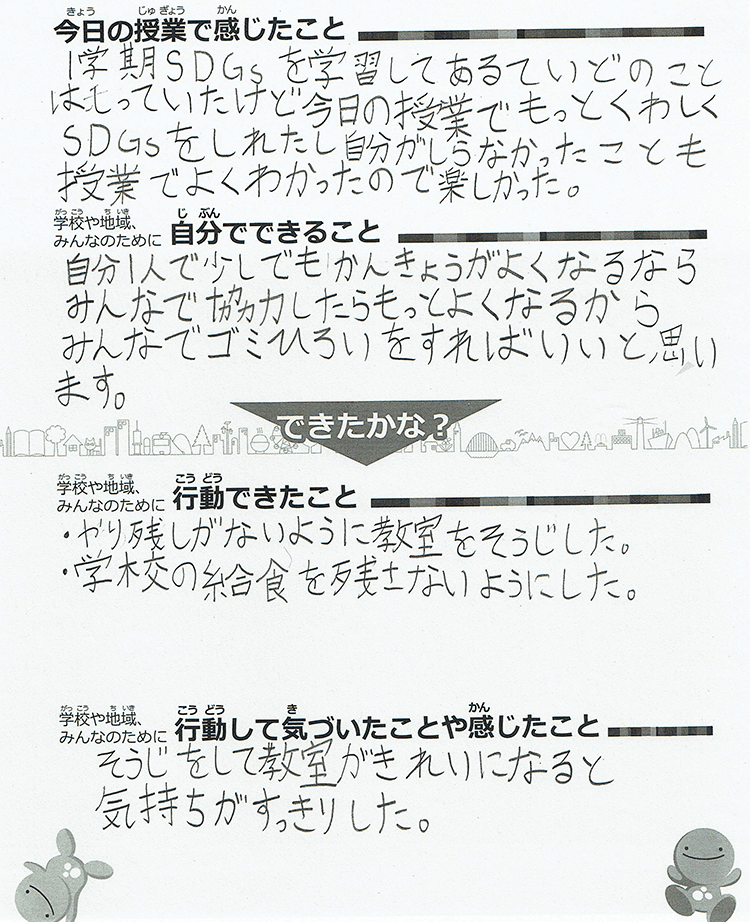 今日の授業で感じたこと
1学期SDGsを学習してあるていどのこと
はしっていたけど今日の授業でもっとくわしく
SDGsをしれたし自分がしらなかったことも
授業でよくわかったので楽しかった。
学校や地域、みんなのために 自分でできること
自分1人で少しでもかんきょうがよくなるなら
みんなで協力したらもっとよくなるから
みんなでゴミひろいをすればいいと思い
ます。
できたかな?
学校や地域、みんなのために 行動できたこと
・やり残しがないように教室をそうじした。
・学校の給食を残さないようにした。
学校や地域、みんなのために 行動して気づいたことや感じたこと
そうじをして教室がきれいになると
気持ちがすっきりした。